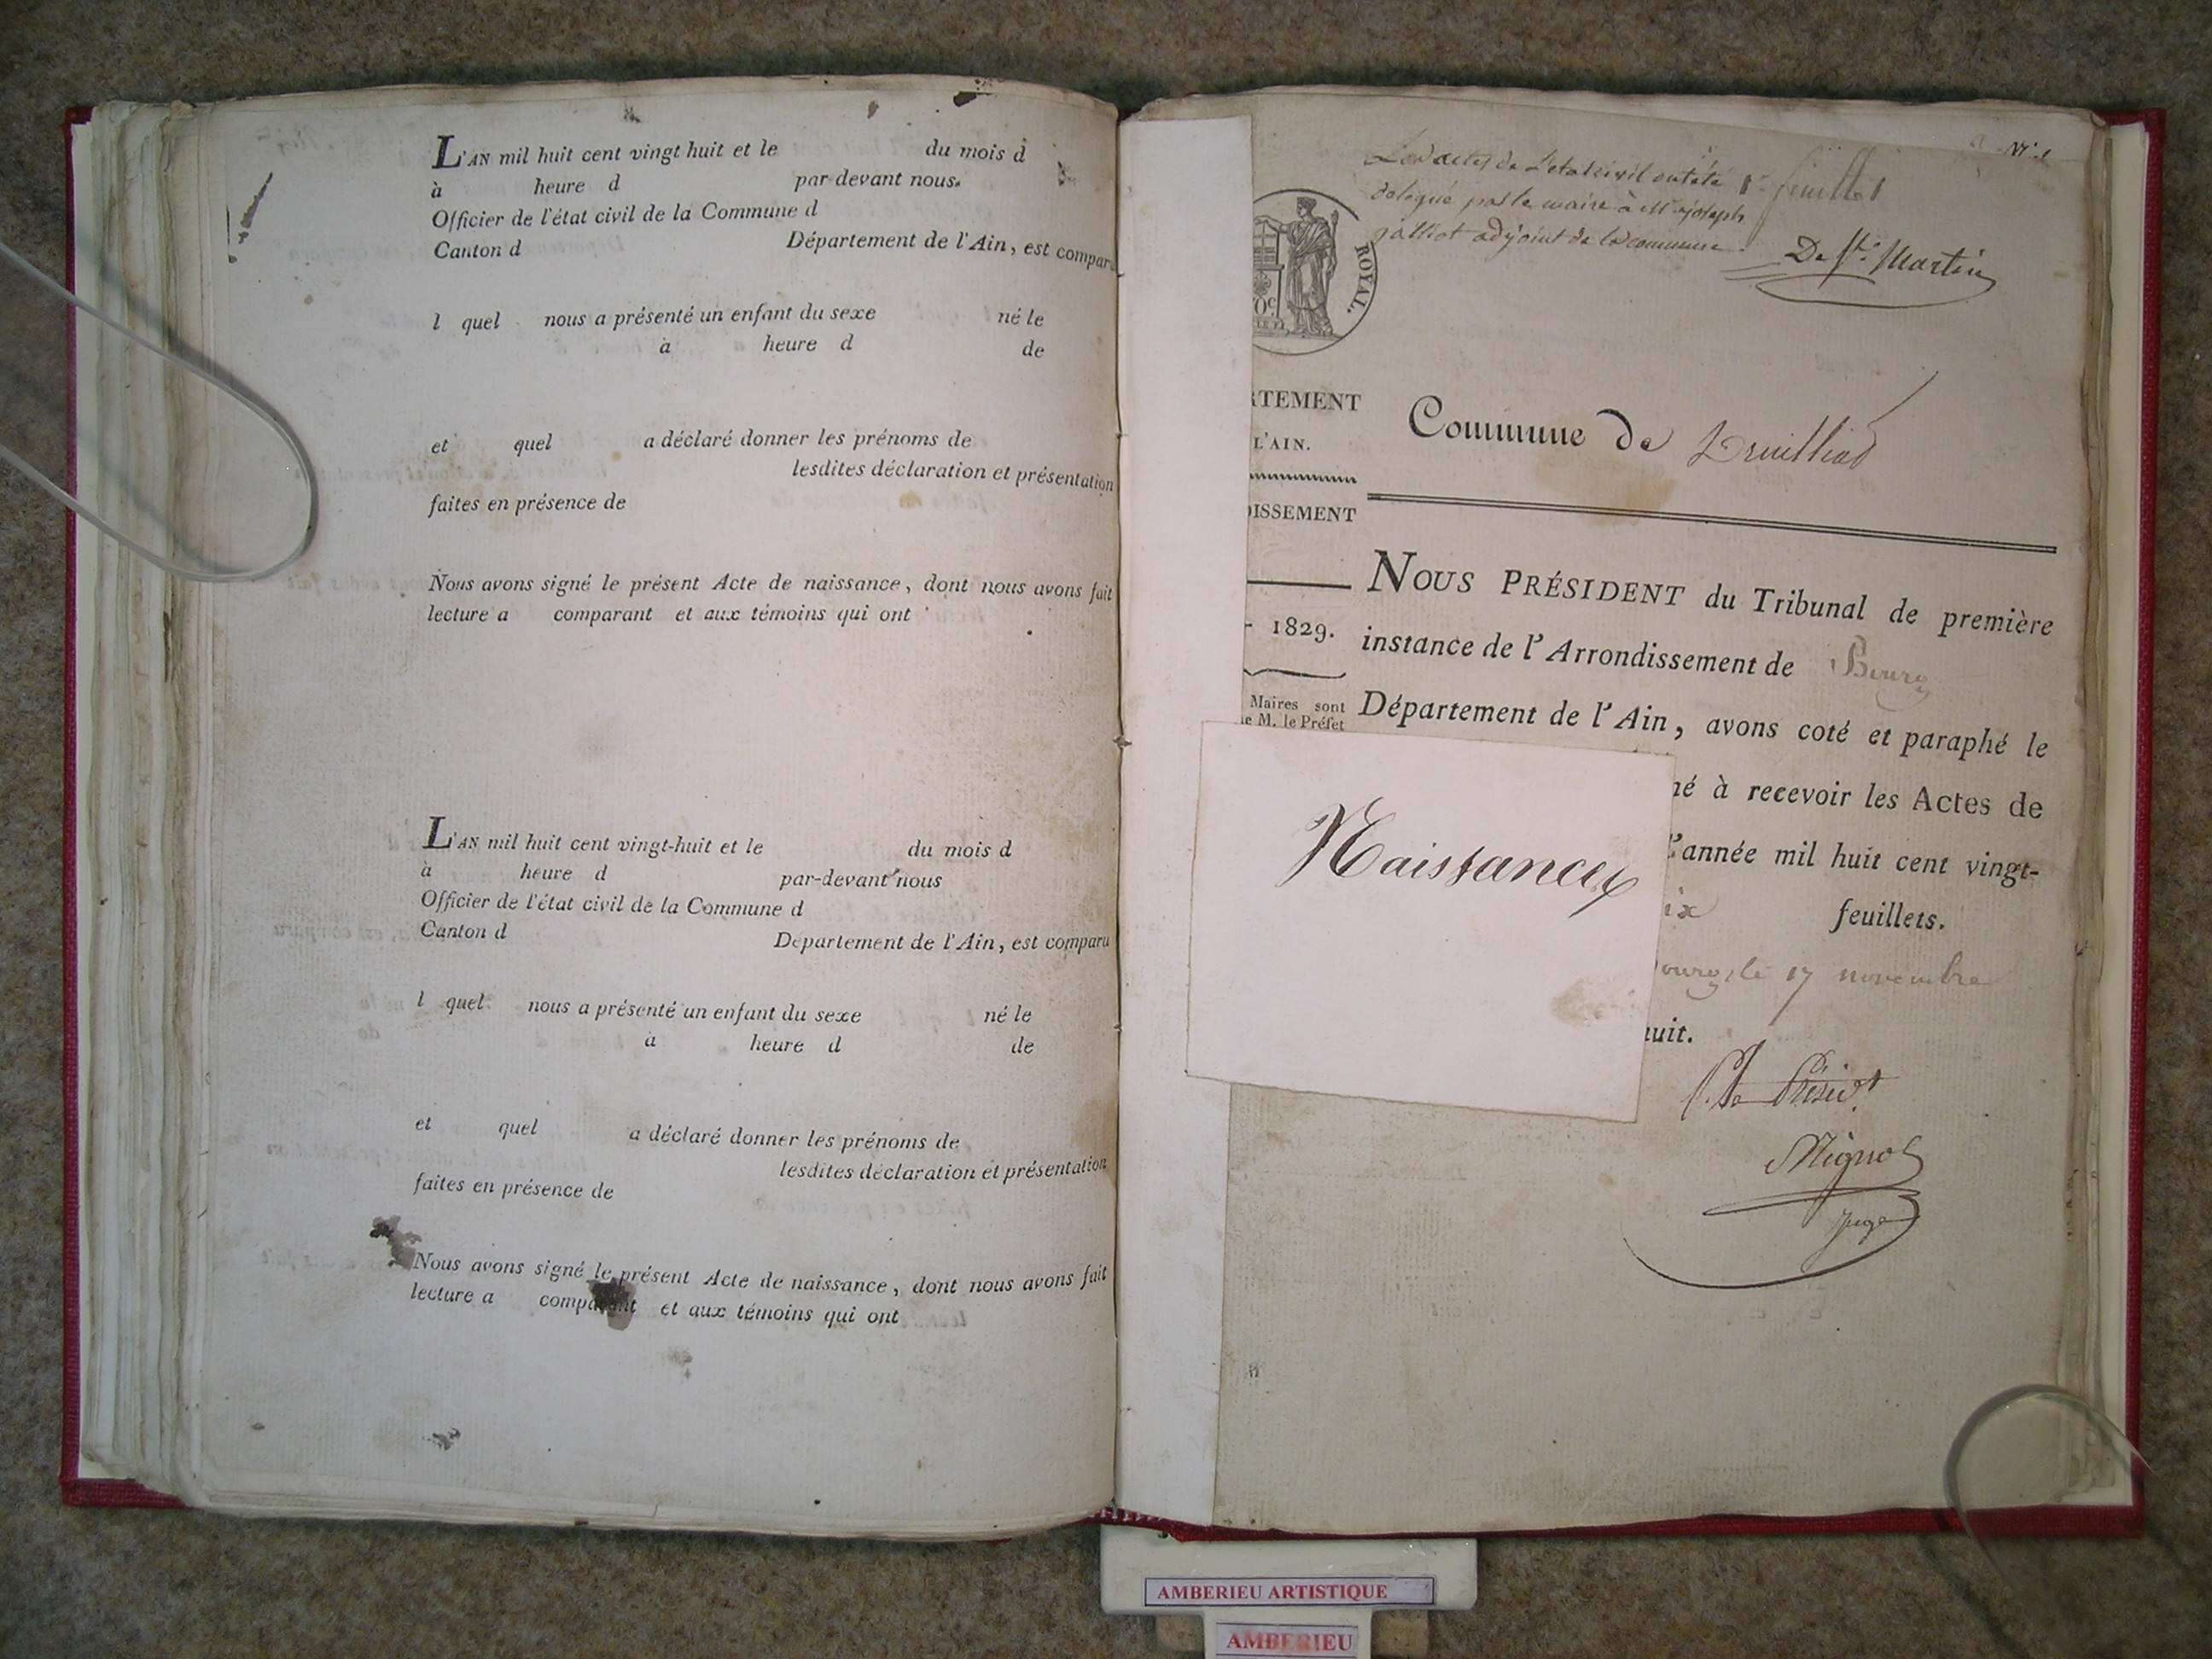 L'AN mil huit cent vingt huit et le du mois d
à heure d par-devant nous
Officier de l'état civil de la Commune d
Canton d Département de l'Ain, est comparu
l quel nous a présenté un enfant du sexe né le
à heure d de
et quel a déclaré donner les prénoms de
lesdites déclaration et présentation
faites en présence de
Nous avons signé le présent Acte de naissance, dont nous avons fait
lecture a comparant et aux témoins qui ont
L'AN mil huit cent vingt-huit et le du mois d
à heure d par-devant nous
Officier de l'état civil de la Commune d
Canton d Département de l'Ain, est comparu
l quel nous a présenté un enfant du sexe né le
à heure d de
et quel a déclaré donner les prénoms de
lesdites déclaration et présentation
faites en présence de
Nous avons signé le présent Acte de naissance, dont nous avons fait
lecture a comparant et aux témoins qui ont
Les actes de l'etat civil ont été
délégué par le maire à Mr joseph
galliot adjoint de la commune.
1er feuillet
De St. Martin
ROYAL.
RTEMENT
L'AIN.
DISSEMENT
1829.
Maires sont
e M. le Préfet
Commune de Druilliat
NOUS PRÉSIDENT du Tribunal de première
instance de l'Arrondissement de Bourg
Département de l'Ain, avons coté et paraphé le
né à recevoir les Actes de
l'année mil huit cent vingt-
ix feuillets.
ourg, le 17 novembre
uit.
Naissances
P. le Présidt
Mignot
juge
AMBERIEU ARTISTIQUE
AMBERIEU